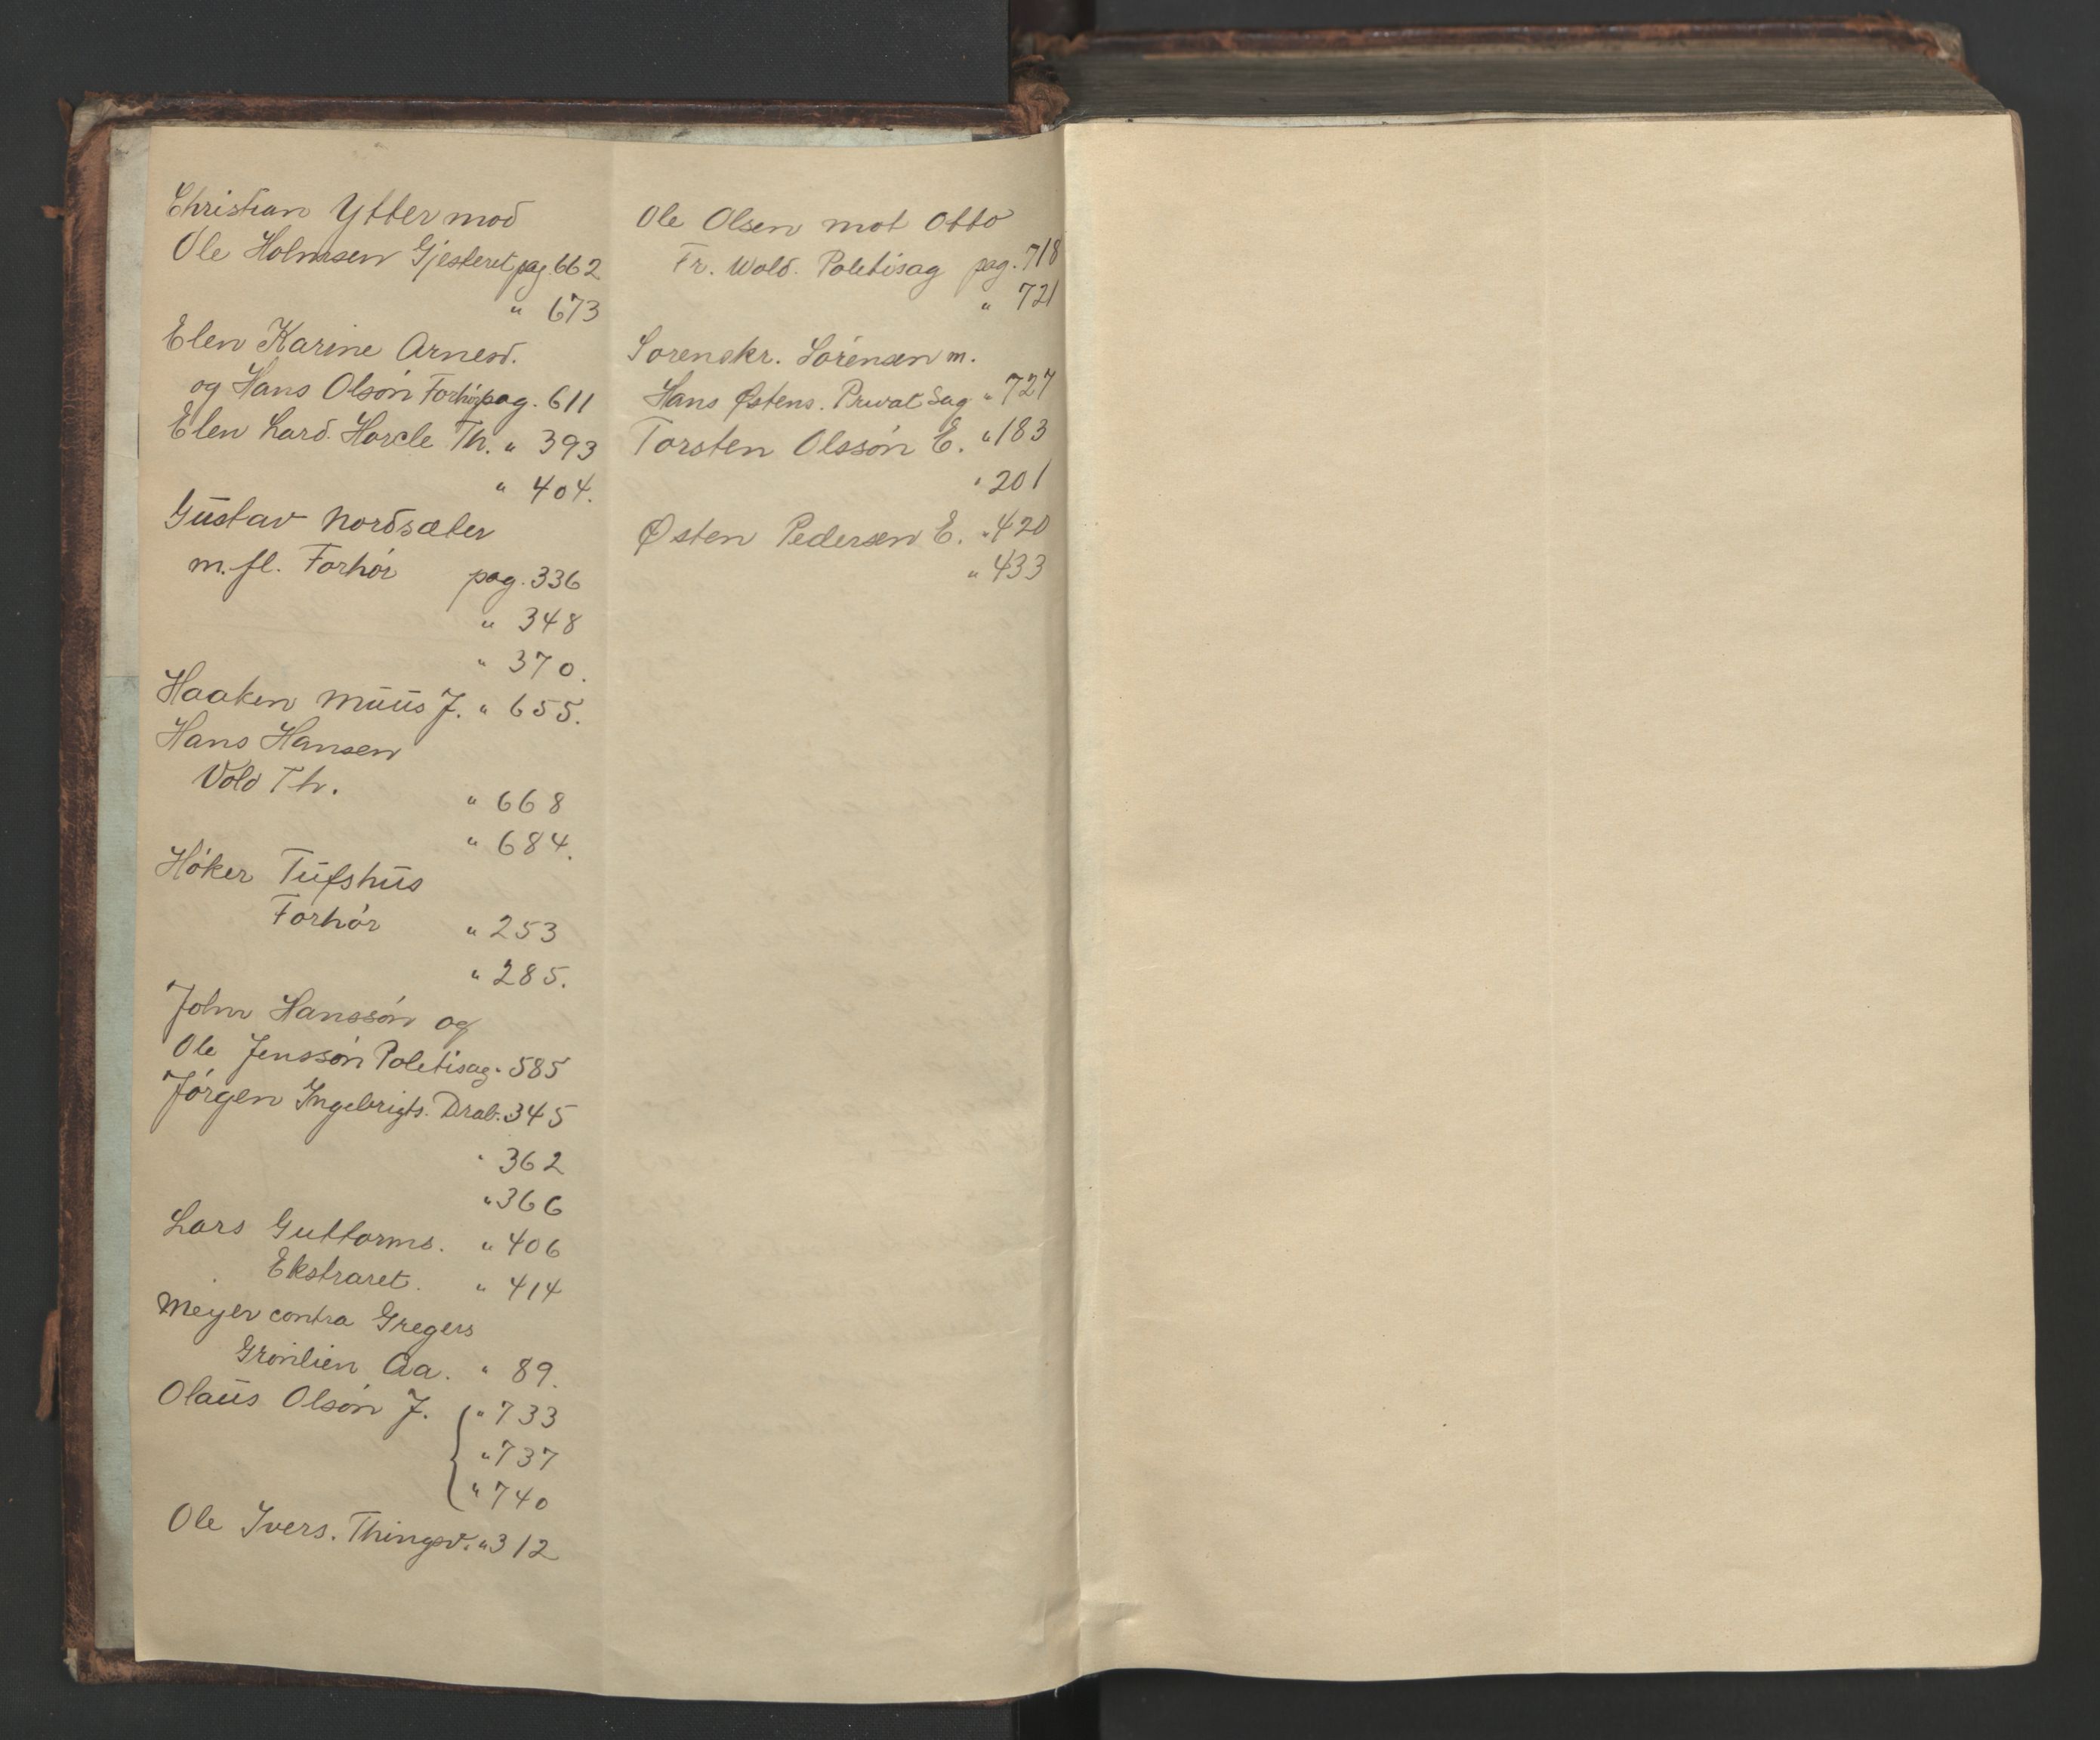 Christian Ytter mod
Ole Holmsen Gjesteret pag. 662
" 673
Elen Karine Arnesd.
og Hans Olsön Forhör pag. 611
Elen Lard. Horcle Th. " 393
" 404.
Gustav Nordsæter
m. fl. Forhör pag. 336
" 348
" 370.
Haaken Muus J. " 655.
Hans Hansen
Vold Th.
" 668
" 684.
Höker Tufshus
Forhör " 253
" 285.
John Hanssön og
Ole Jenssön Politisag " 585
Jörgen Ingebrigts. Drab. " 345
" 362
" 366
Lars Guttorms. " 406
Ekstraret. " 414
Meyer contra Gregers
Grönlien Aa. " 89.
Olaus Olsön J. " 733
" 737
" 740
Ole Ivers. Thingsv. " 312
Ole Olsen mot Otto
Fr. Wold. Politisag pag. 718
" 721
Sorenskr. Sörensen m.
Hans Østens. Privat Sag " 727
Torsten Olssön E. " 183
" 201
Østen Pedersen E. " 420
" 433